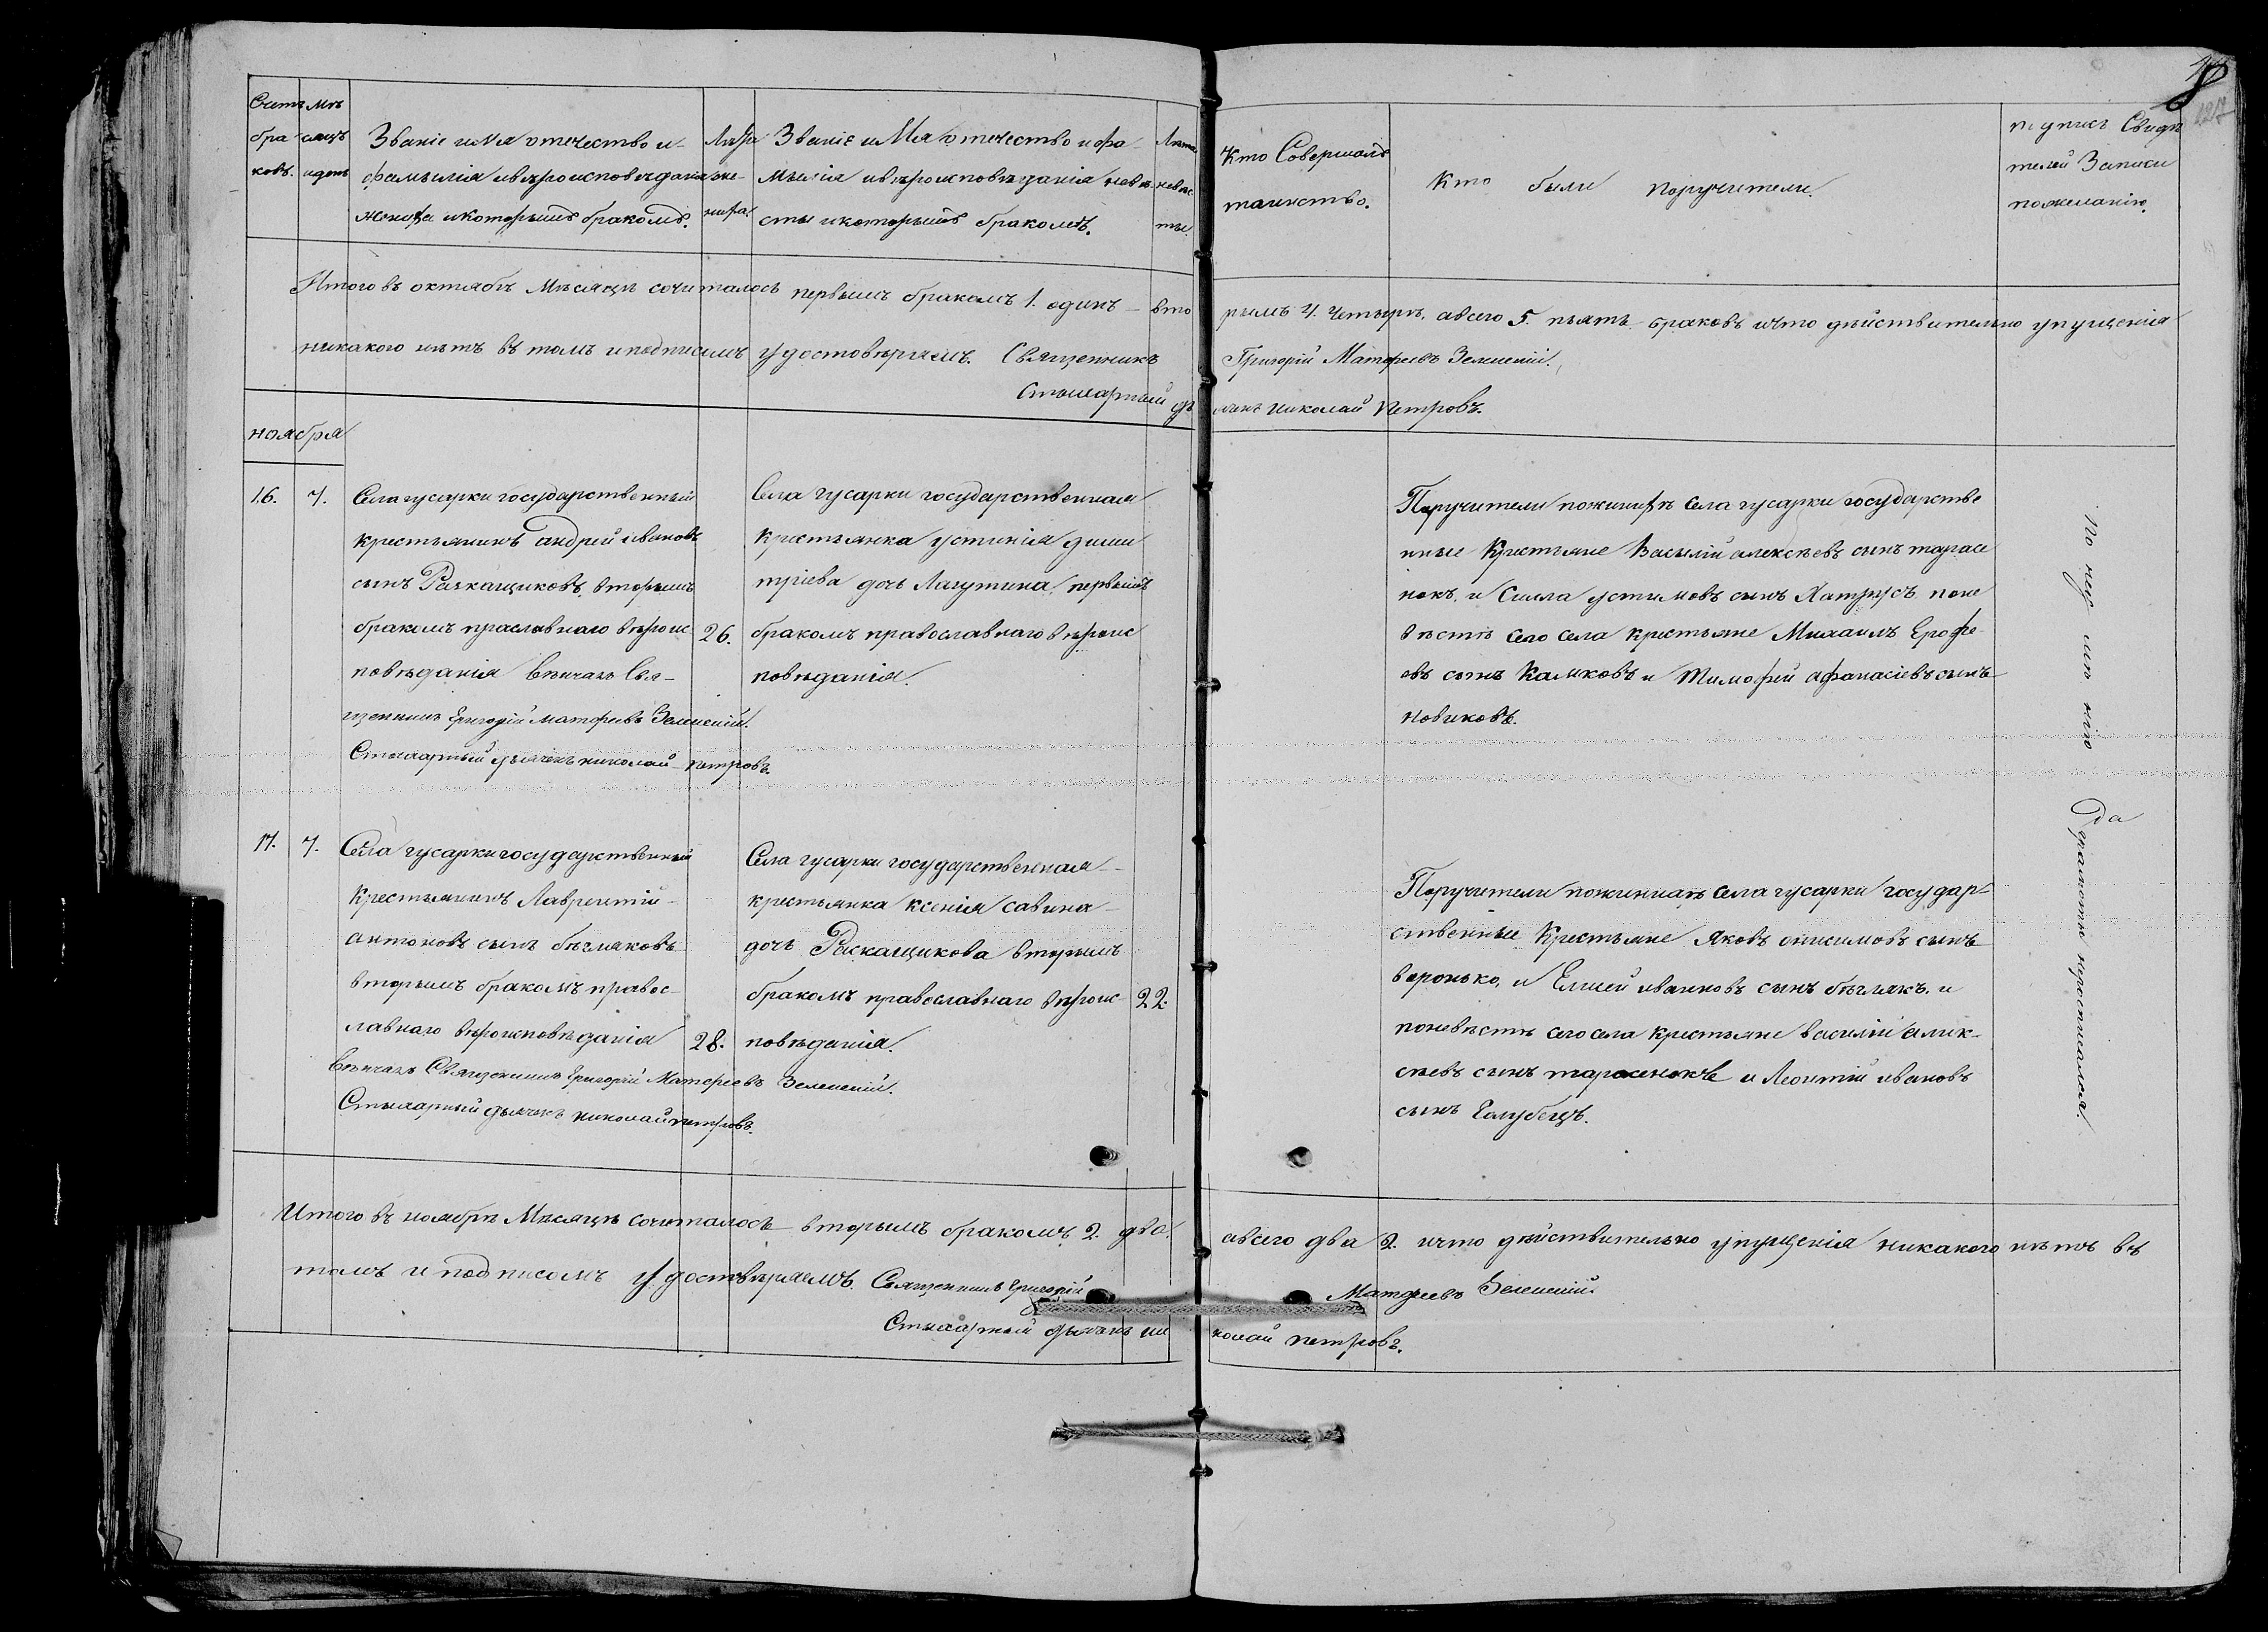 Счетъ бра ковъ.
Мѣ сяцъ идень
Званіе имя отечество и
фамылія ивѣроисповѣданія
жениха икоторымъ бракомъ.
Лѣта же ниха.
Званіе имя отечество ифа
мылія ивѣроисповѣданія невѣ
сты икоторымъ бракомъ.
Лѣта невѣс ты.
Кто Совершалъ
таинство.
Кто были поручители.
подпись Свидѣ
телей Записи
пожеланію.
8
Итого въ октябрѣ Мѣсяцѣ сочиталось первымъ бракомъ 1. одинъ — вто рымъ 4. четыри, авсего 5. пять браковъ ичто дѣйствительно упущенія
никакого нѣтъ въ томъ иподписомъ удостовѣряемъ. Священникъ Григорій Матфеевъ Зеленскій.
Стыхарный дь ячекъ николай Петровъ.
ноября
16. 7.
Села гусарки государственный
крестьянинъ андрей ивановъ
сынъ Разкащиковъ, вторымъ
бракомъ праславнаго вѣроис
повѣданія Венчалъ Свя-
щенникъ Григорій матфеевъ Зеленскій.
Стыхарный дьячекъ николай петровъ.
26.
Села гусарки государственная
крестьянка устинія дими
тріева дочь Лагутина, первымъ
бракомъ православнаго вѣроис
повѣданія.
Поручители пожинихѣ Села гусарки государстве
нные Крестьяне Василій алексѣевъ сынъ тарасе
нокъ, и Сысла устимовъ сынъ поне
вѣстѣ сего села крестьяне Михаилъ Ерофе-
овъ сынъ Калмковъ и Тимофей афанасіевъ сынъ
новиковъ.
17. 7.
Села гусарки государственный
Крестьянинъ Лаврентій
антоновъ сынъ бѣчмяковъ
вторымъ бракомъ правос-
лавнаго вѣроисповѣданія
Венчалъ Священникъ Григорій Матфеевъ Зеленскій.
Стыхарный дьячекъ николай петровъ.
28.
Села гусарки государственная
крестьянка ксенія савина
дочь Раскащикова вторымъ
бракомъ православнаго вѣроис-
повѣданія.
22.
Поручители пожинихѣ Села гусарки государ-
ственные Крестьяне Яковъ онисимовъ сынъ
воронько, и Елисей ивановъ сынъ и
поневѣстѣ сего села крестьяне василій алик-
сѣевъ сынъ тарасенокъ и Леонтій ивановъ
сынъ Голубецъ.
По неу мѣ нію
Да грамоты неросписался.
Итого въ ноябрѣ Мѣсяцѣ сочиталось вторымъ бракомъ 2. два. авсего два 2. ичто дѣйствительно упущенія никакого нѣтъ въ
томъ и подписомъ удостовѣряемъ. Священникъ Григорій Матфеевъ Зеленскій.
Стыхарный дьячекъ ни колай петровъ.